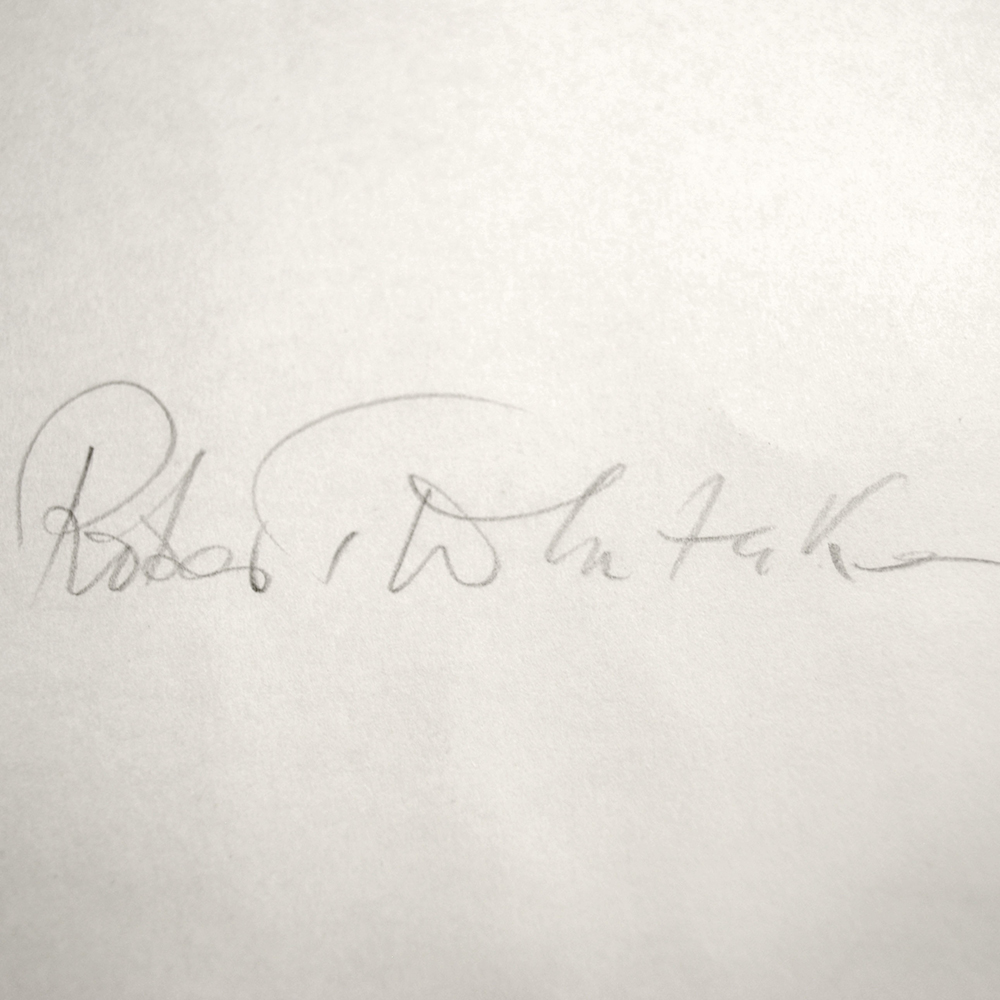 Robert Whitaker